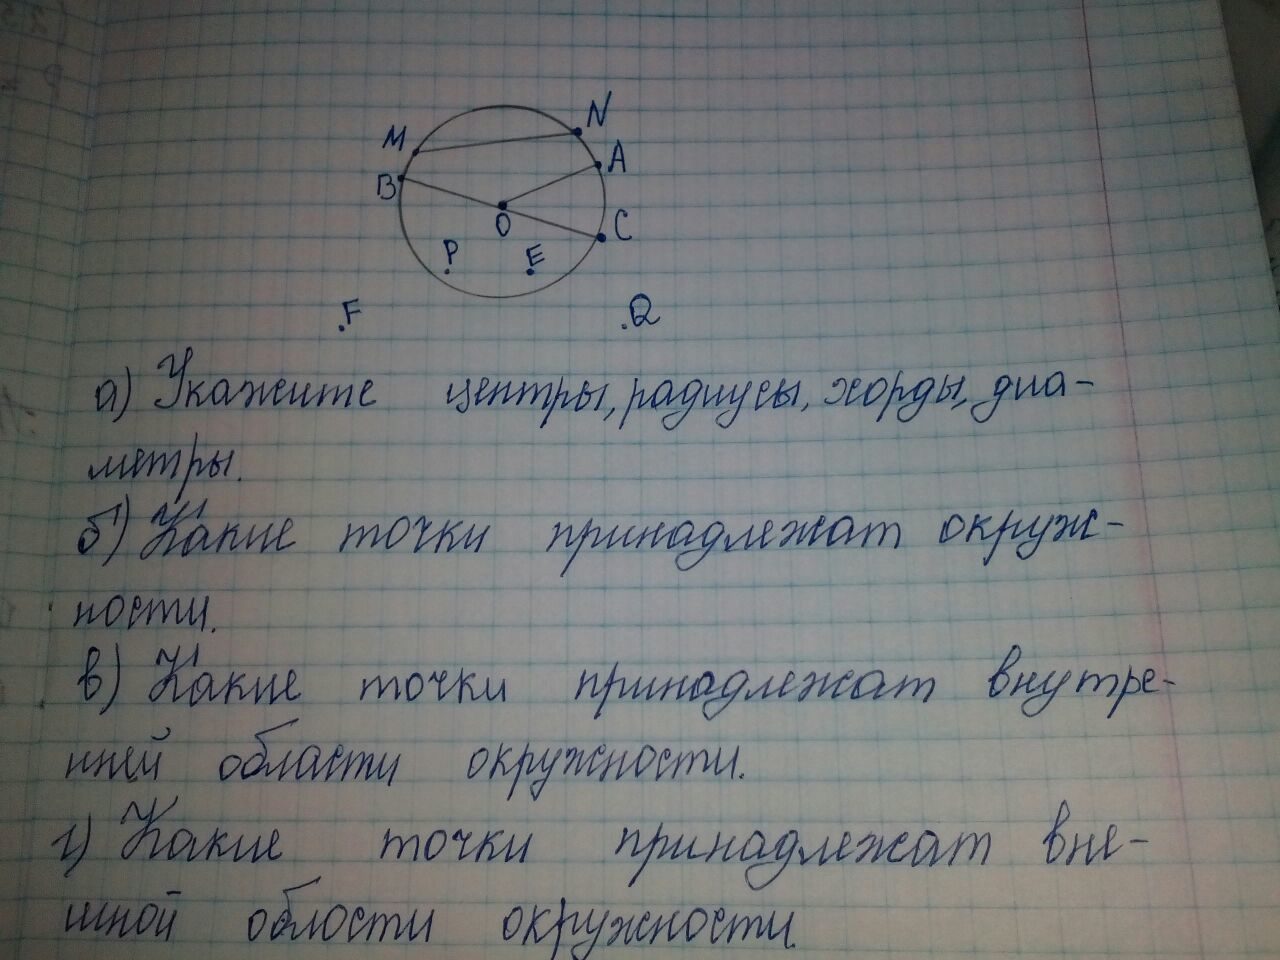 N
M
A
B
O
C
P
E
F
Q
а) Укажите центры, радиусы, хорды, диа-
метры.
б) Какие точки принадлежат окруж-
ности.
в) Какие точки принадлежат внутре-
нней области окружности.
г) Какие точки принадлежат вне-
шной облости окружности.